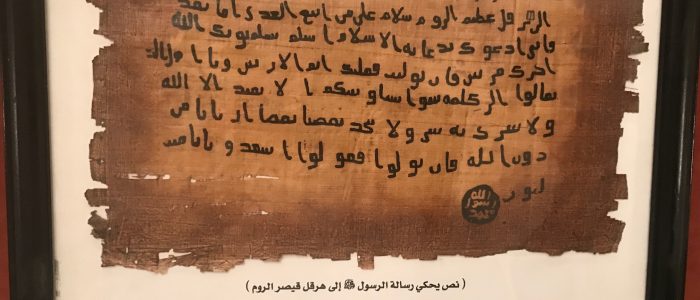 عظيم الروم سلام على من اتبع الهدى اما بعد
فاني ادعوك بدعاية الاسلام اسلم تسلم يوتك الله
اجرك مرتين فان توليت فعليك اثم
تعالوا الى كلمة سوا الا نعبد الا الله
ولا نشرك به ولا يتخذ بعضنا بعضا اربابا من
دون الله فان تولوا فقولوا اشهدوا بانا
الله
رسول
محمد
( نص يحكي رسالة الرسول ﷺ إلى هرقل قيصر الروم )